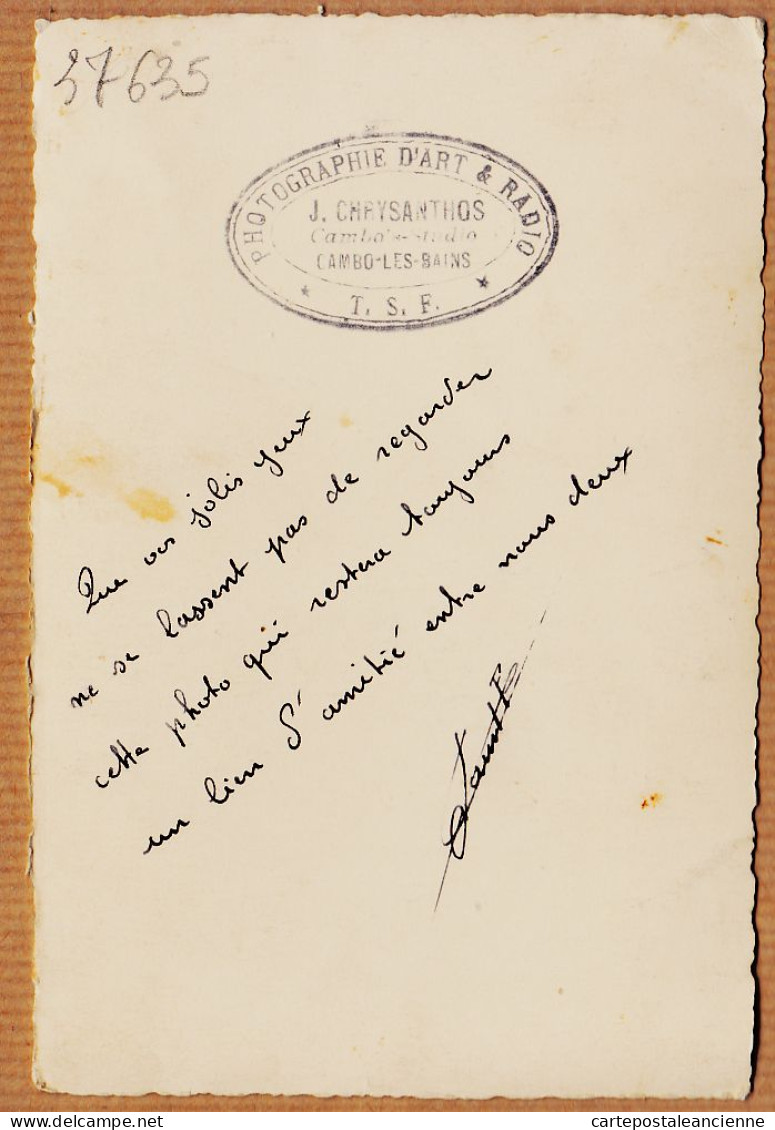 37635
PHOTOGRAPHIE D'ART & RADIO
J. CHRYSANTHOS
Cambo's-Studio
CAMBO-LES-BAINS
* T. S. F. *
Que vos jolis yeux
ne se lassent pas de regarder
cette photo qui restera toujours
un lien d'amitié entre nous deux
cartepostaleancienne.com